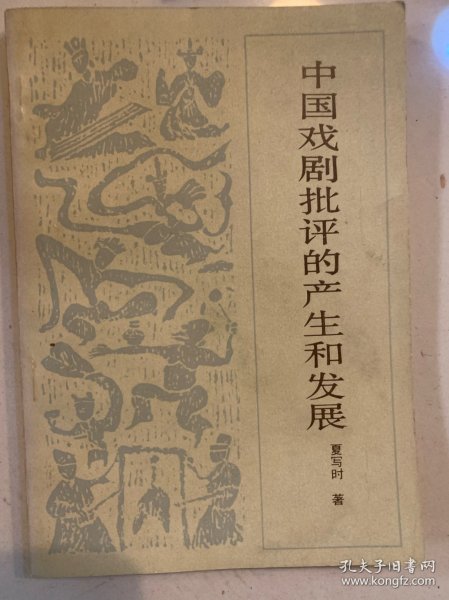 中国戏剧批评的产生和发展
夏写时 著
孔夫子旧书网
www.kongfz.com